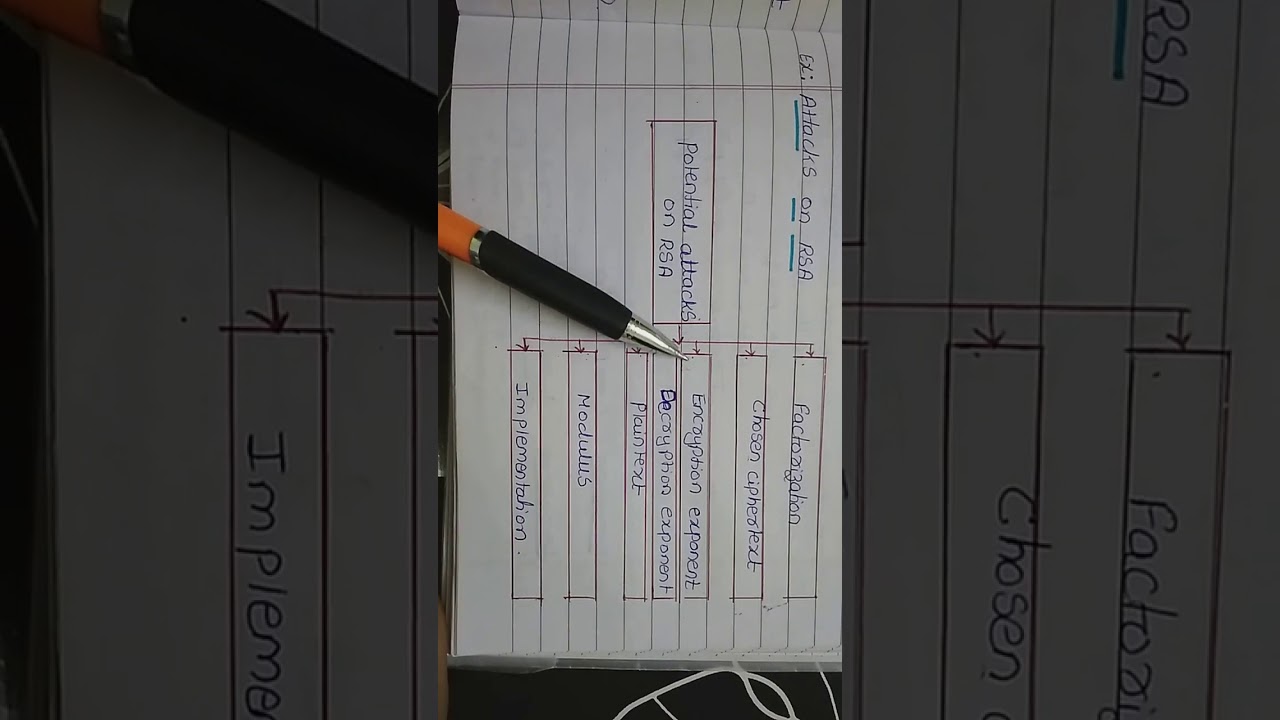 Ex: Attacks on RSA
Potential attacks
on RSA
Factorization
Chosen ciphertext
Encryption exponent
Decryption exponent
Plaintext
Modulus
Implementation.
RSA
Factori
Chosen
Impleme